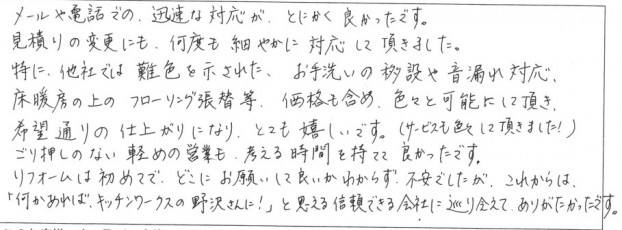 メールや電話での、迅速な対応が、とにかく良かったです。
見積りの変更にも、何度も細やかに対応して頂きました。
特に、他社では難色を示された、お手洗いの移設や音漏れ対応、
床暖房の上のフローリング張替等、価格も含め、色々と可能にして頂き、
希望通りの仕上がりになり、とても嬉しいです。(サービスも色々して頂きました!)
ゴリ押しのない軽めの営業も、考える時間を持てて良かったです。
リフォームは初めてで、どこにお願いして良いかわからず、不安でしたが、これからは、
「何かあれば、キッチンワークスの野沢さんに!」と思える信頼できる会社に巡り会えて、ありがたかったです。